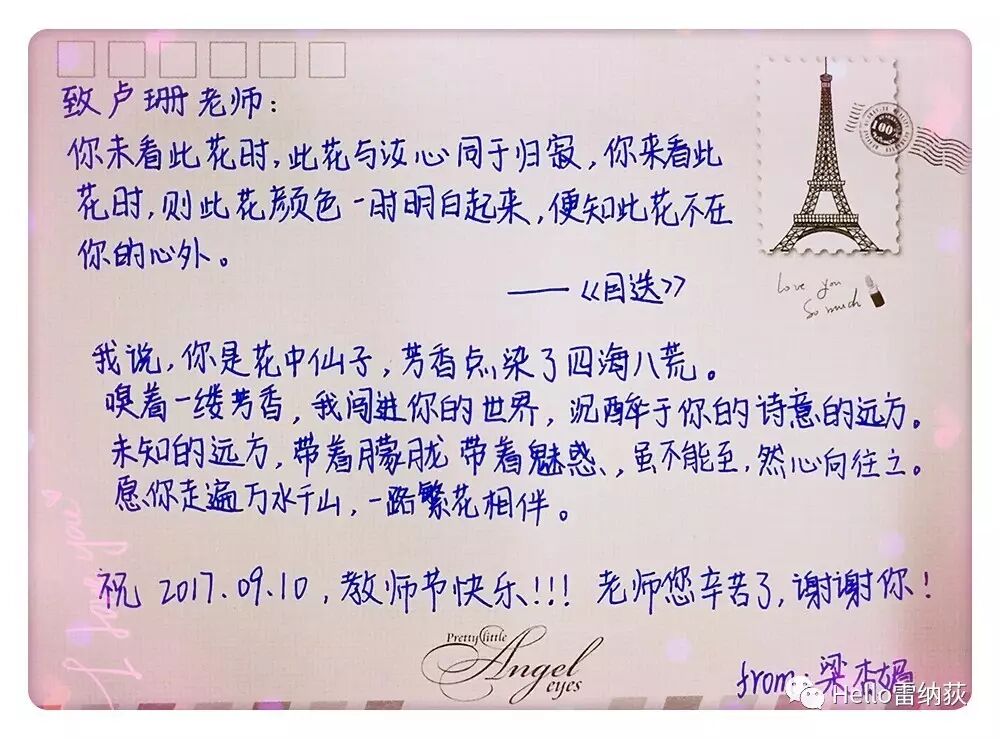 致卢珊老师：
你未看此花时，此花与汝心同于归寂，你来看此
花时，则此花颜色一时明白起来，便知此花不在
你的心外。
——《目送》
love you
so much
我说，你是花中仙子，芳香点染了四海八荒。
嗅着一缕芳香，我闯进你的世界，沉醉于你的诗意的远方。
未知的远方，带着朦胧带着魅惑，虽不能至，然心向往之。
愿你走遍万水千山，一路繁花相伴。
祝 2017.09.10，教师节快乐!!! 老师您辛苦了，谢谢你！
Pretty little
Angel
eyes
from 梁杰
Hello雷纳荻
I love you